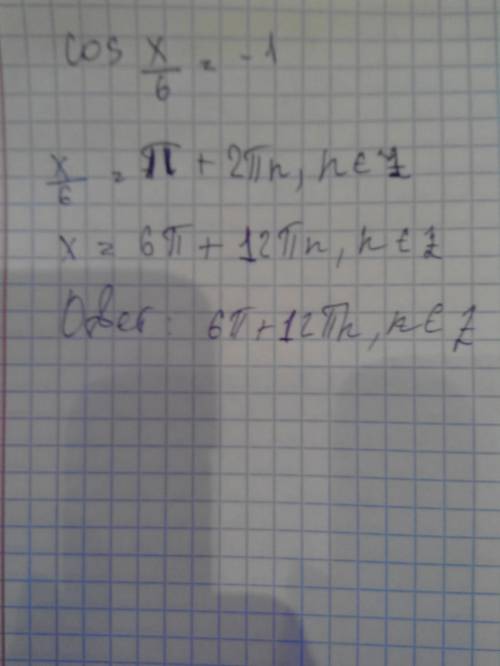 cos x/6 = -1
x/6 = π + 2πn, n ∈ Z
x = 6π + 12πn, n ∈ Z
Ответ: 6π + 12πn, n ∈ Z